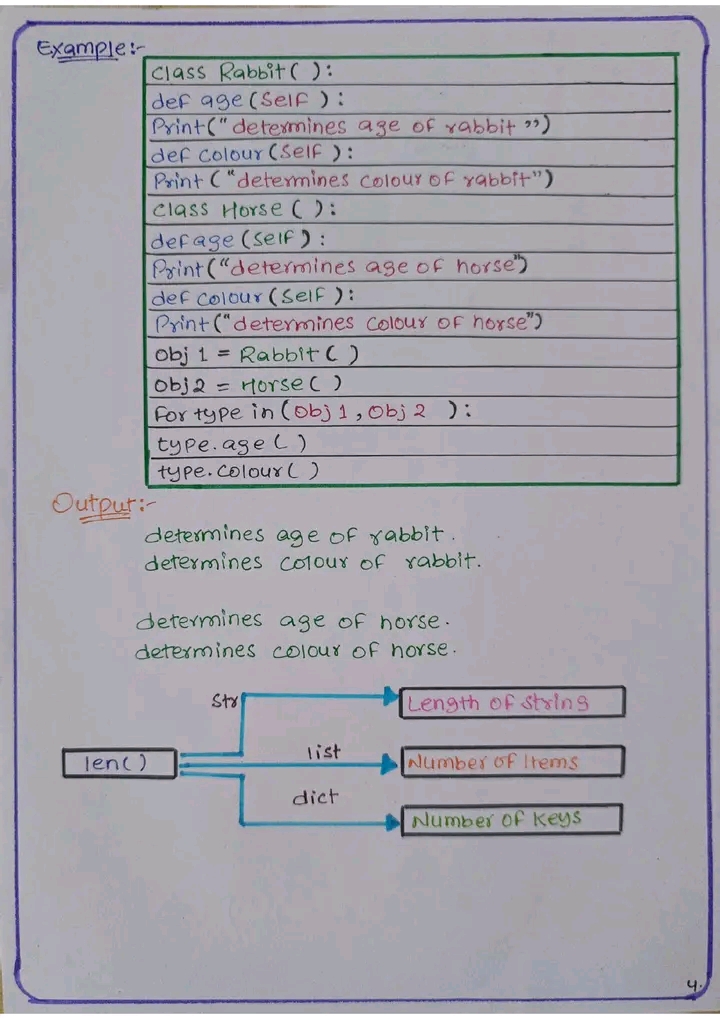 Example:-
class Rabbit( ):
def age(Self ):
Print("determines age of rabbit")
def colour(Self ):
Print ("determines colour of rabbit")
class Horse ( ):
def age (Self ):
Print("determines age of horse")
def colour (Self ):
Print("determines colour of horse")
Obj 1 = Rabbit ( )
Obj2 = Horse ( )
For type in (Obj 1, Obj 2 ):
type.age( )
type.colour( )
Output:-
determines age of rabbit.
determines colour of rabbit.
determines age of horse.
determines colour of horse.
Str
Length of string
len( )
list
Number of Items
dict
Number of keys
4.